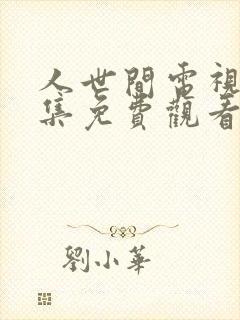 人世間電視
集免費觀看
劉小華